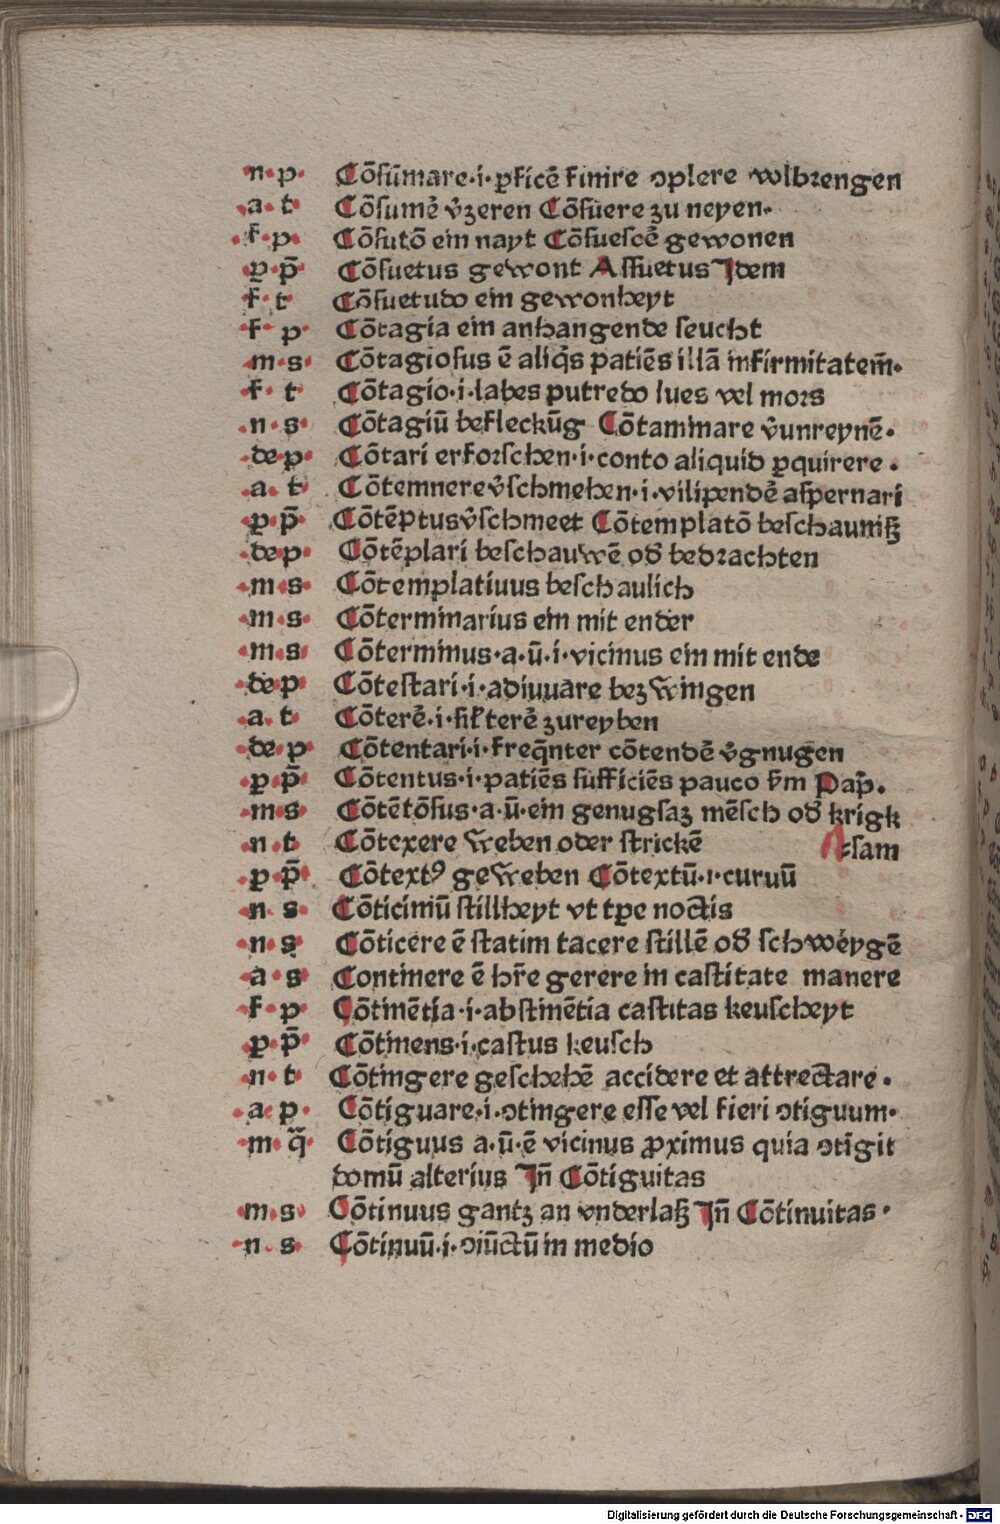 n·p· Cōsūmare·i·ꝑficē finire ꝯplere volbrengen
·a·t· Cōsumē v̄zeren Cōsuere zu neyen·
·f·p· Cōsutō ein nayt Cōsuescē gewonen
·p·p̄· Cōsuetus gewont Assuetus Idem
f·t Cōsuetudo ein gewonheyt
·f·p· Cōtagia ein anhangende seucht
·m·s· Cōtagiosus ē aliq̄s patiēs illā infirmitatem̄·
·f·t Cōtagio·i·labes putredo lues vel mors
·n·s· Cōtagiū befleckūg Cōtaminare v̄unreynē·
·de·p· Cōtari erforschen·i·conto aliquid ꝑquirere·
·a·t· Cōtemnere v̄schmehen·i·vilipendē aspernari
·p·p̄· Cōtēptus v̄schmeet Cōtemplatō beschauniß
·de·p· Cōtēplari beschauwē od̄ bedrachten
·m·s· Cōtemplatiuus beschaulich
·m·s· Cōterminarius ein mit ender
·m·s· Cōterminus·a·ū·i·vicinus ein mit ende
·de·p· Cōtestari·i·adiuuare bezwingen
·a·t Cōterē·i·sil̄terē zureyben
·de·p· Cōtentari·i·freq̄nter cōtendē v̄gnugen
·p·p̄· Cōtentus·i·patiēs sufficiēs pauco v̄m Pap̄·
·m·s· Cōtētōsus·a·ū·ein genugsaz mēsch od̄ krigk
·n·t· Cōtexere weben oder strickē sam
·p·p̄· Cōtextꝰ geweben Cōtextū·i·curuū
·n·s Cōticiniū stillheyt vt tꝑe noctis
·n·s Cōticere ē statim tacere stillē od̄ schweygē
·a·s· Continere ē hr̄e gerere in castitate manere
·f·p· Cōtinētia·i·abstinētia castitas keuscheyt
·p·p̄· Cōtinens·i·castus keusch
·n·t Cōtingere geschehē accidere et attrectare·
·a·p· Cōtiguare·i·ꝯtingere esse vel fieri ꝯtiguum·
·m·q̄· Cōtiguus a·ū·ē vicinus ꝓximus quia ꝯtīgit
domū alterius In̄ Cōtiguitas
·m·s· Cōtinuus gantz an vnderlaß In̄ Cōtinuitas·
·n·s Cōtinuū·i·ꝯiūctū in medio
Digitalisierung gefördert durch die Deutsche Forschungsgemeinschaft - DFG